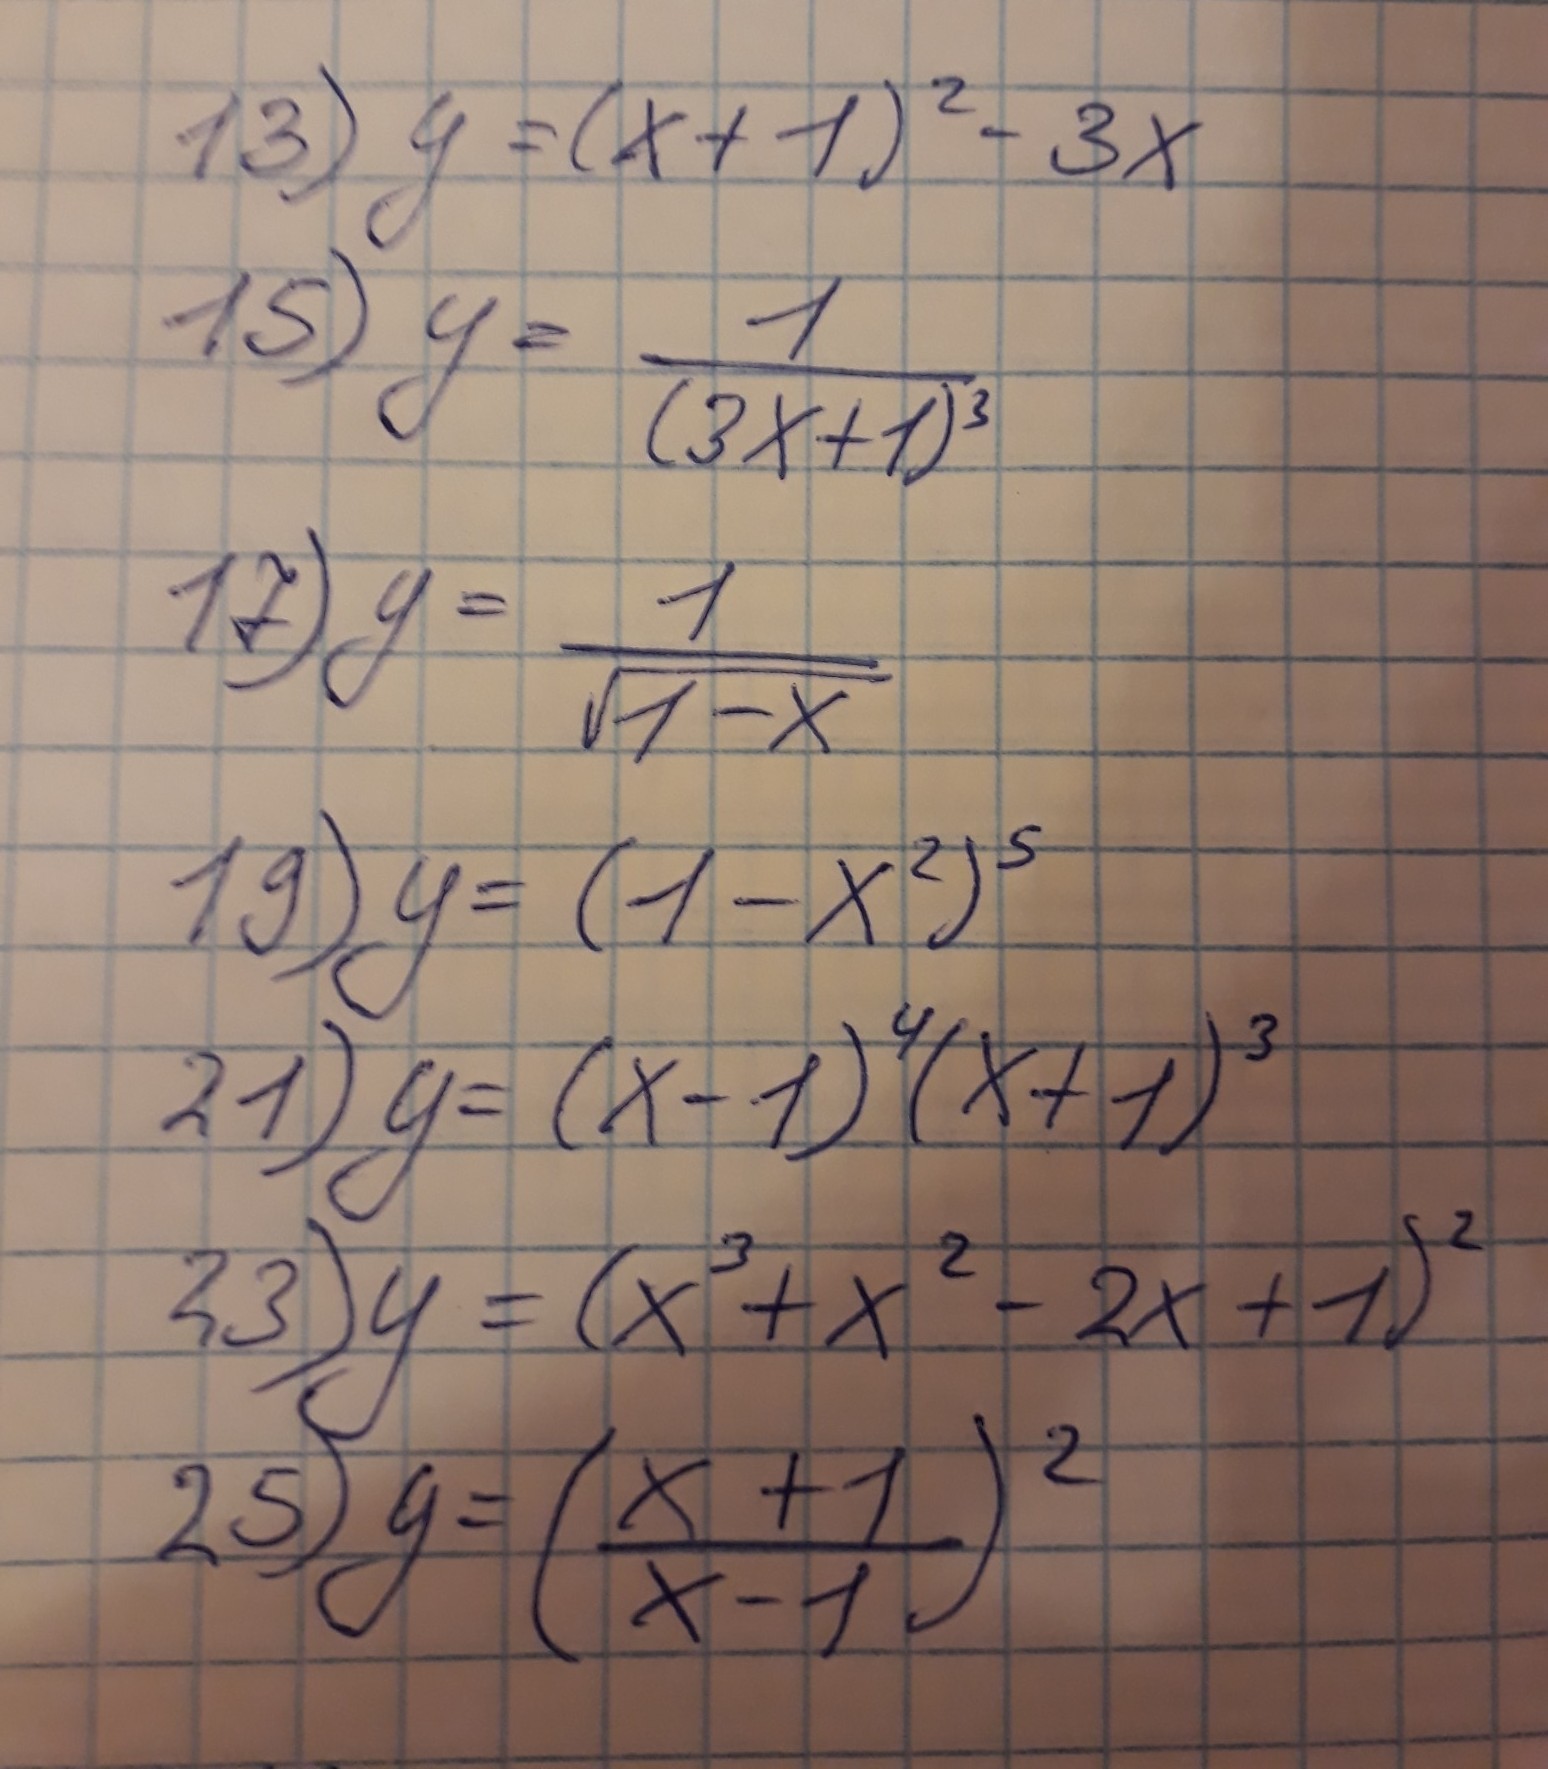 13) y = (x+1)² - 3x
15) y = 1/(3x+1)³
17) y = 1/√(1-x)
19) y = (1-x²)⁵
21) y = (x-1)⁴(x+1)³
23) y = (x³+x²-2x+1)²
25) y = ((x+1)/(x-1))²